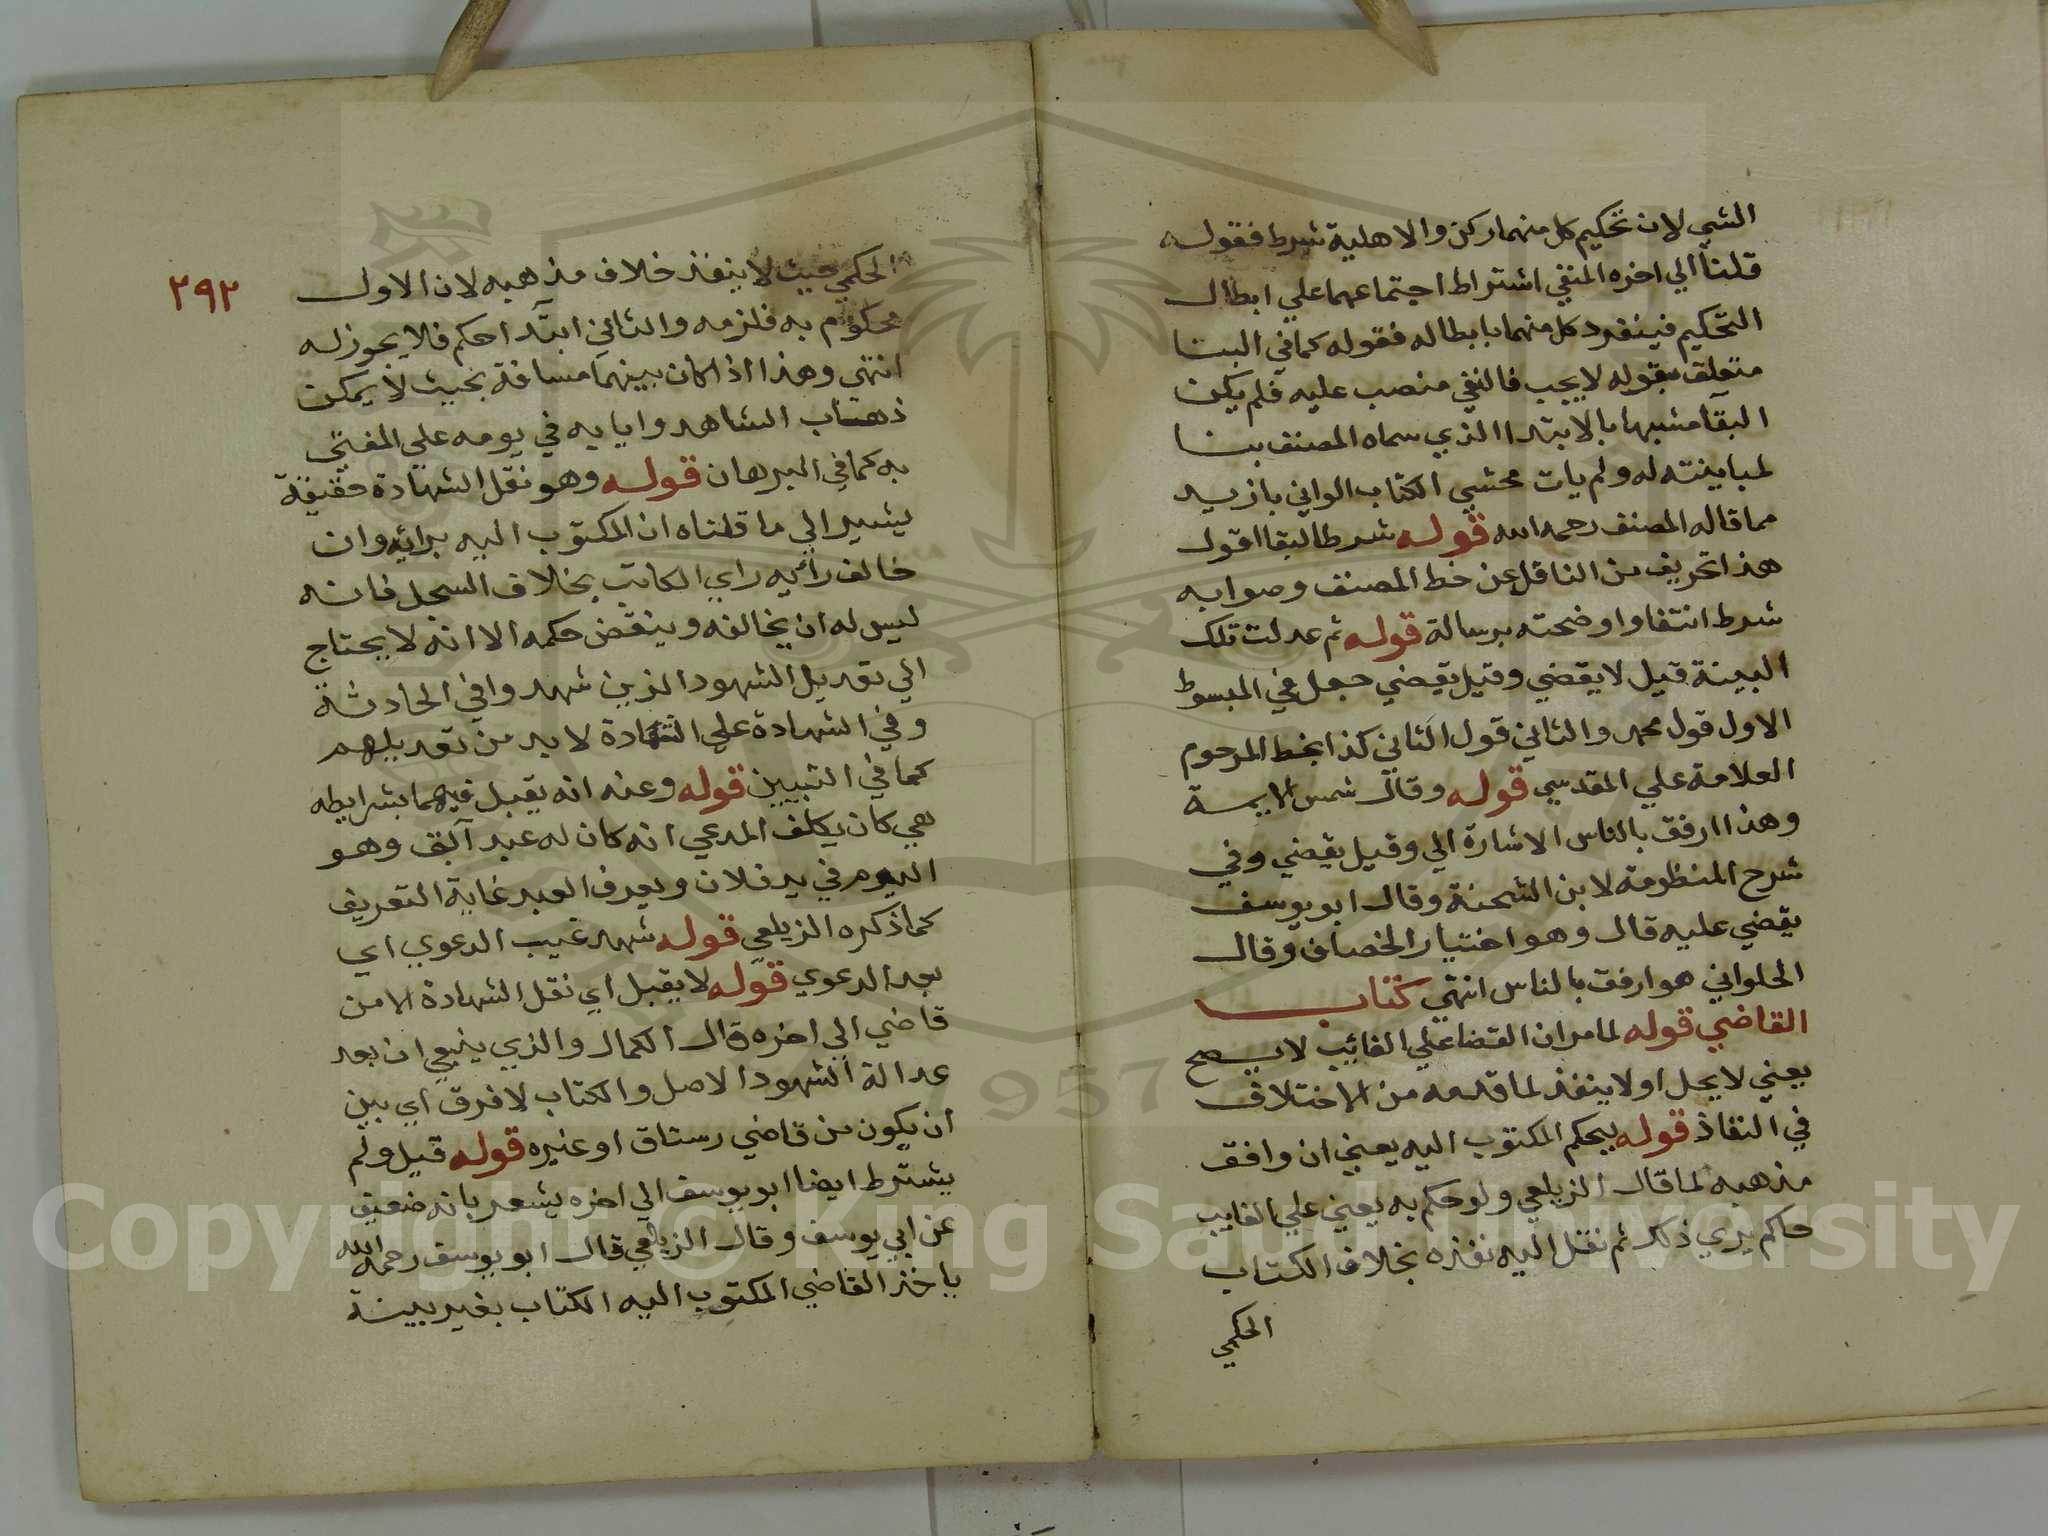 الشي لان تحكيم كل منهما ركن والاهلية شرط فقوله
قلنا الي اخره المنفي اشتراط اجتماعهما علي ابطال
التحكيم فينفرد كل منهما بابطاله فقوله كما في البنا
متعلق بقوله لا يجب فالنفي منصب عليه فلم يكن
البقا مشبها بالابتدا الذي سماه المصنف بنا
لمباينته له ولم يات محشي الكتاب الواني بازيد
مما قاله المصنف رحمه الله قوله شرط البقا اقول
هذا تحريف من الناقل عن خط المصنف وصوابه
شرط انتفا واوضحته برسالة قوله ثم عدلت تلك
البينة قيل لا يقضي وقيل يقضي جعل في المبسوط
الاول قول محمد والثاني قول الثاني كذا بخط المرحوم
العلامة علي المقدسي قوله وقال شمس الايمة
وهذا ارفق بالناس الاشارة الي وقيل يقضي وفي
شرح المنظومة لابن الشحنة وقال ابو يوسف
يقضي عليه قال وهو اختيار الخصاف وقال
الحلواني هو ارفق بالناس انتهي كتاب
القاضي قوله لما مر ان القضا علي الغائب لا يصح
يعني لا يحل او لا ينفذ لما قدمه من الاختلاف
في النفاذ قوله ليحكم المكتوب اليه يعني ان وافق
مذهبه لما قال الزيلعي ولو حكم به يعني علي الغايب
حاكم يري ذلك ثم نقل اليه نفذه بخلاف الكتاب
الحكمي
٢٩٢
الحكمي حيث لا ينفذ خلاف مذهبه لان الاول
محكوم به فلزمه والثاني ابتدا حكم فلا يجوز له
انتهي وهذا اذا كان بينهما مسافة بحيث لا يمكن
ذهاب الشاهد وايابه في يومه علي المفتي
به كما في البرهان قوله وهو نقل الشهادة حقيقة
يشير الي ما قلناه ان المكتوب اليه برايه وان
خالف رائيه راي الكاتب بخلاف السجل فانه
ليس له ان يخالفه وينقض حكمه الا انه لا يحتاج
الي تعديل الشهود الذين شهدوا في الحادثة
وفي الشهادة علي الشهادة لا بد من تعديلهم
كما في التبيين قوله وعنه انه يقبل فيهما بشرايطه
هي كان يكلف المدعي انه كان له عبد آبق وهو
اليوم في يد فلان ويعرف العبد غاية التعريف
كما ذكره الزيلعي قوله شهد غيب الدعوي اي
بعد الدعوي قوله لا يقبل اي نقل الشهادة الا من
قاضي الي اخره قال الكمال والذي ينبغي ان بعد
عدالة الشهود الاصل والكتاب لا فرق اي بين
ان يكون من قاضي رستاق او غيره قوله قيل ولم
يشترط ايضا ابو يوسف الي اخره يشعر بانه ضعيف
عن ابي يوسف وقال الزيلعي قال ابو يوسف رحمه الله
ياخذ القاضي المكتوب اليه الكتاب بغير بينة
1957
Copyright © King Saud University